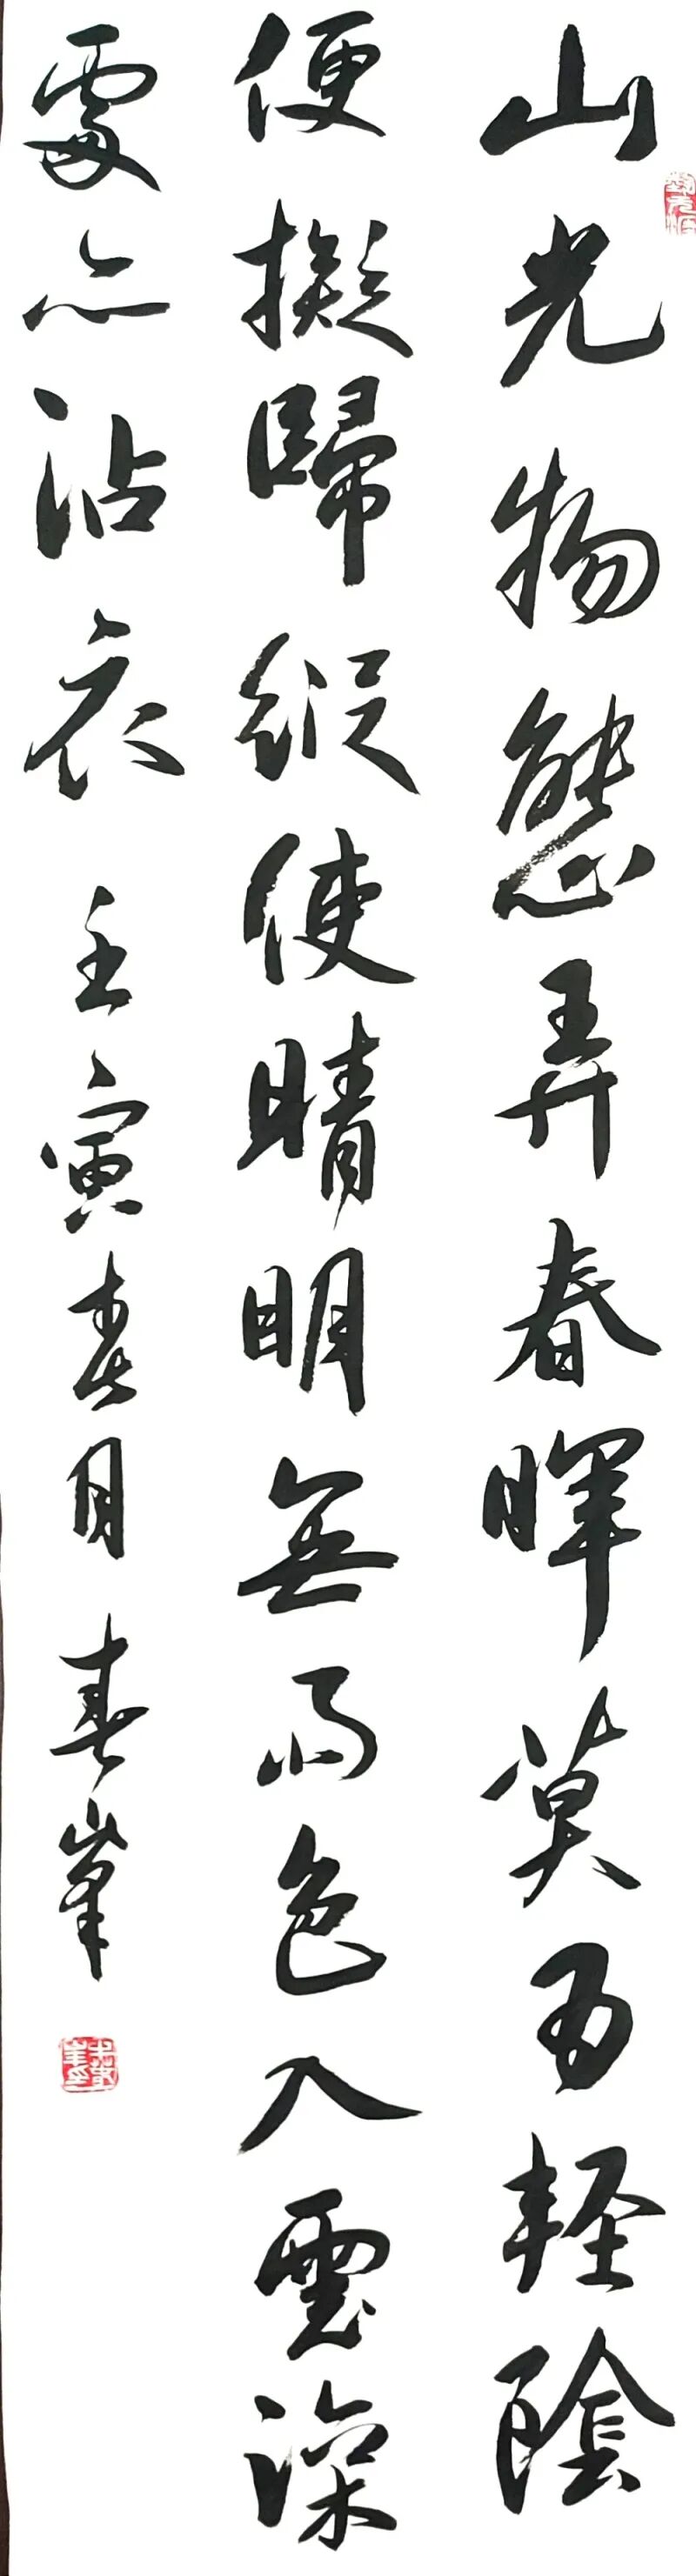 山光物態弄春暉莫為輕陰
便擬歸縱使晴明無雨色入雲深
處亦沾衣 壬寅春月 春峯